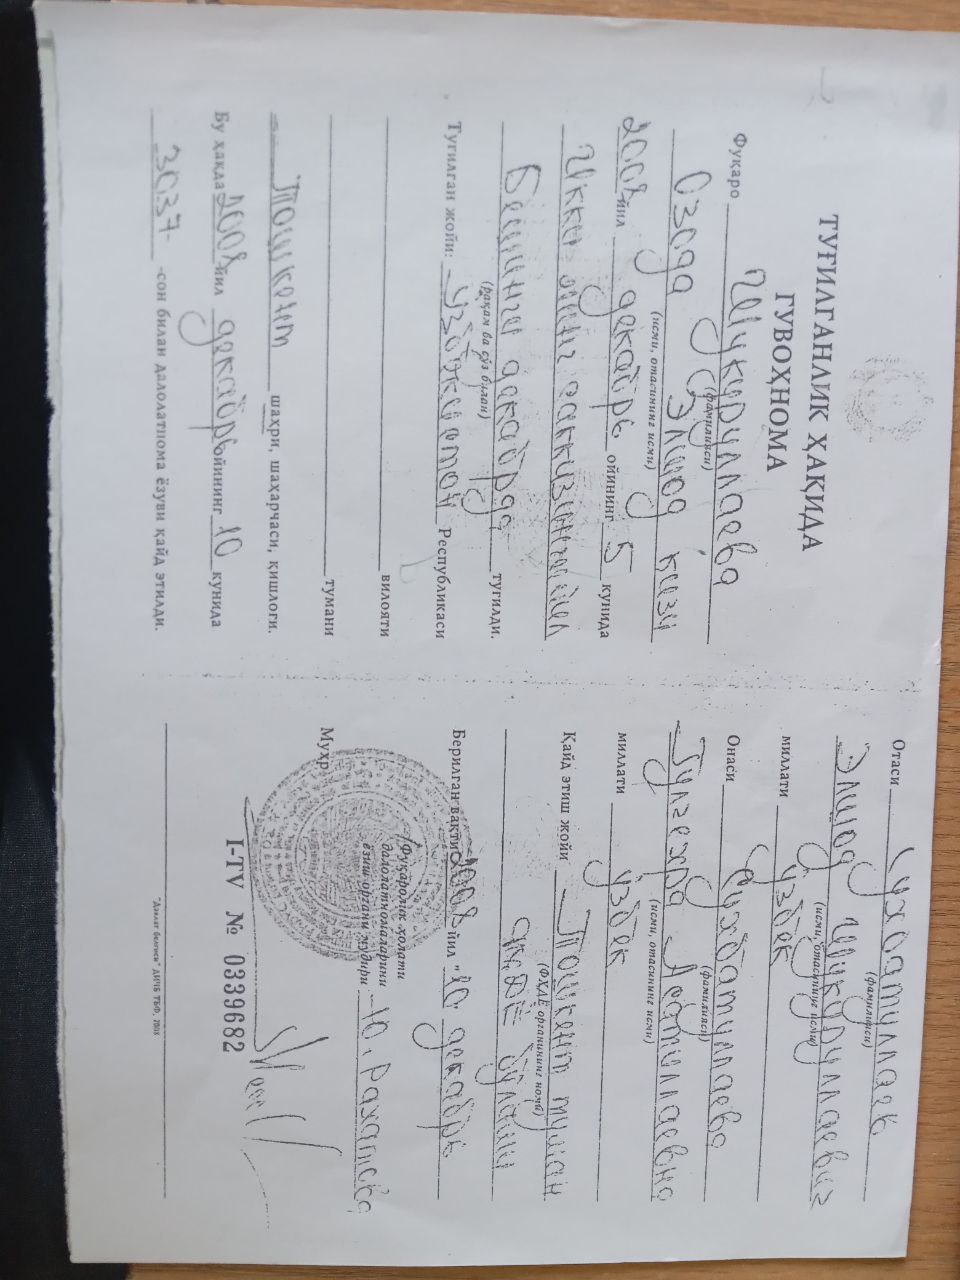 ТУҒИЛГАНЛИК ҲАҚИДА
ГУВОҲНОМА
Фуқаро Шукуруллаева
(фамилияси)
Озода Элшод кизи
(исми, отасининг исми)
2008 йил декабрь ойининг 5 кунида
Икки минг саккизинчи йил
Бешинчи декабрда туғилди.
(рақам ва сўз билан)
Туғилган жойи: Узбекистон Республикаси
вилояти
тумани
Тошкент шаҳри, шаҳарчаси, қишлоғи.
Бу ҳақда 2008 йил декабрь ойининг 10 кунида
3037 -сон билан далолатнома ёзуви қайд этилди.
Отаси Сухбатуллаев
(фамилияси)
Элшод Шукуруллаевич
(исми, отасининг исми)
миллати узбек
Онаси Сухбатуллаева
(фамилияси)
Гулчехра Асатиллаевна
(исми, отасининг исми)
миллати узбек
Қайд этиш жойи Тошкент туман
(ФҲДЁ органининг номи)
ФХДЁ бўлими
Берилган вақти 2008 йил "10" декабрь
Муҳр
Фуқаролик ҳолати
далолатномаларини
ёзиш органи мудири Ю. Рахатова
I-TV № 0339682
"Давлат белгиси" ДИЧБ ТБФ, 2008